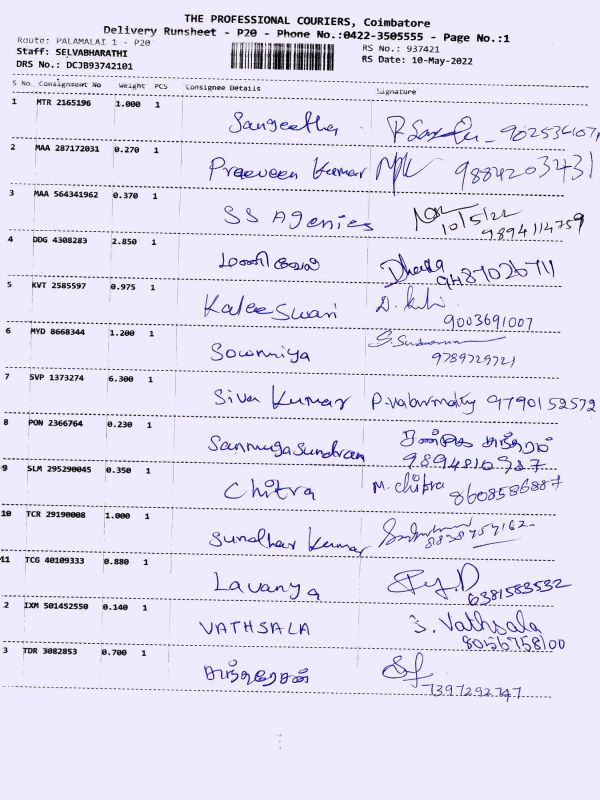 THE PROFESSIONAL COURIERS, Coimbatore
Delivery Runsheet - P20 - Phone No.:0422-3505555 - Page No.:1
Route: PALAMALAI 1 - P20 RS No.: 937421
Staff: SELVABHARATHI RS Date: 10-May-2022
DRS No.: DCJB93742101
S No. Consignment No Weight PCS Consignee Details Signature
1 MTR 2165196 1.000 1 Sangeetha
2 MAA 287172031 0.270 1 Praeveen Kumar 9884203431
3 MAA 564341962 0.370 1 SS Agenies
10/5/22
9894114759
4 DDG 4308283 2.850 1 மணிவேல்
9487026711
5 KVT 2585597 0.975 1 Kaleeswari
9003691007
6 MYD 8668344 1.200 1 Sowmiya
9789729721
7 SVP 1373274 6.300 1 Siva Kumar P.valarmathy 9790152572
8 PON 2366764 0.230 1 Sanmugasundram
9 SLM 295290045 0.350 1 Chitra M. Chitra 8608586887
10 TCR 29190008 1.000 1 Sundhar Kumar
11 TCG 40109333 0.880 1 Lavanya
6381583532
2 IXM 501452550 0.140 1 VATHSALA S. Vathsala
8056758100
3 TDR 3082853 0.700 1
7397292747